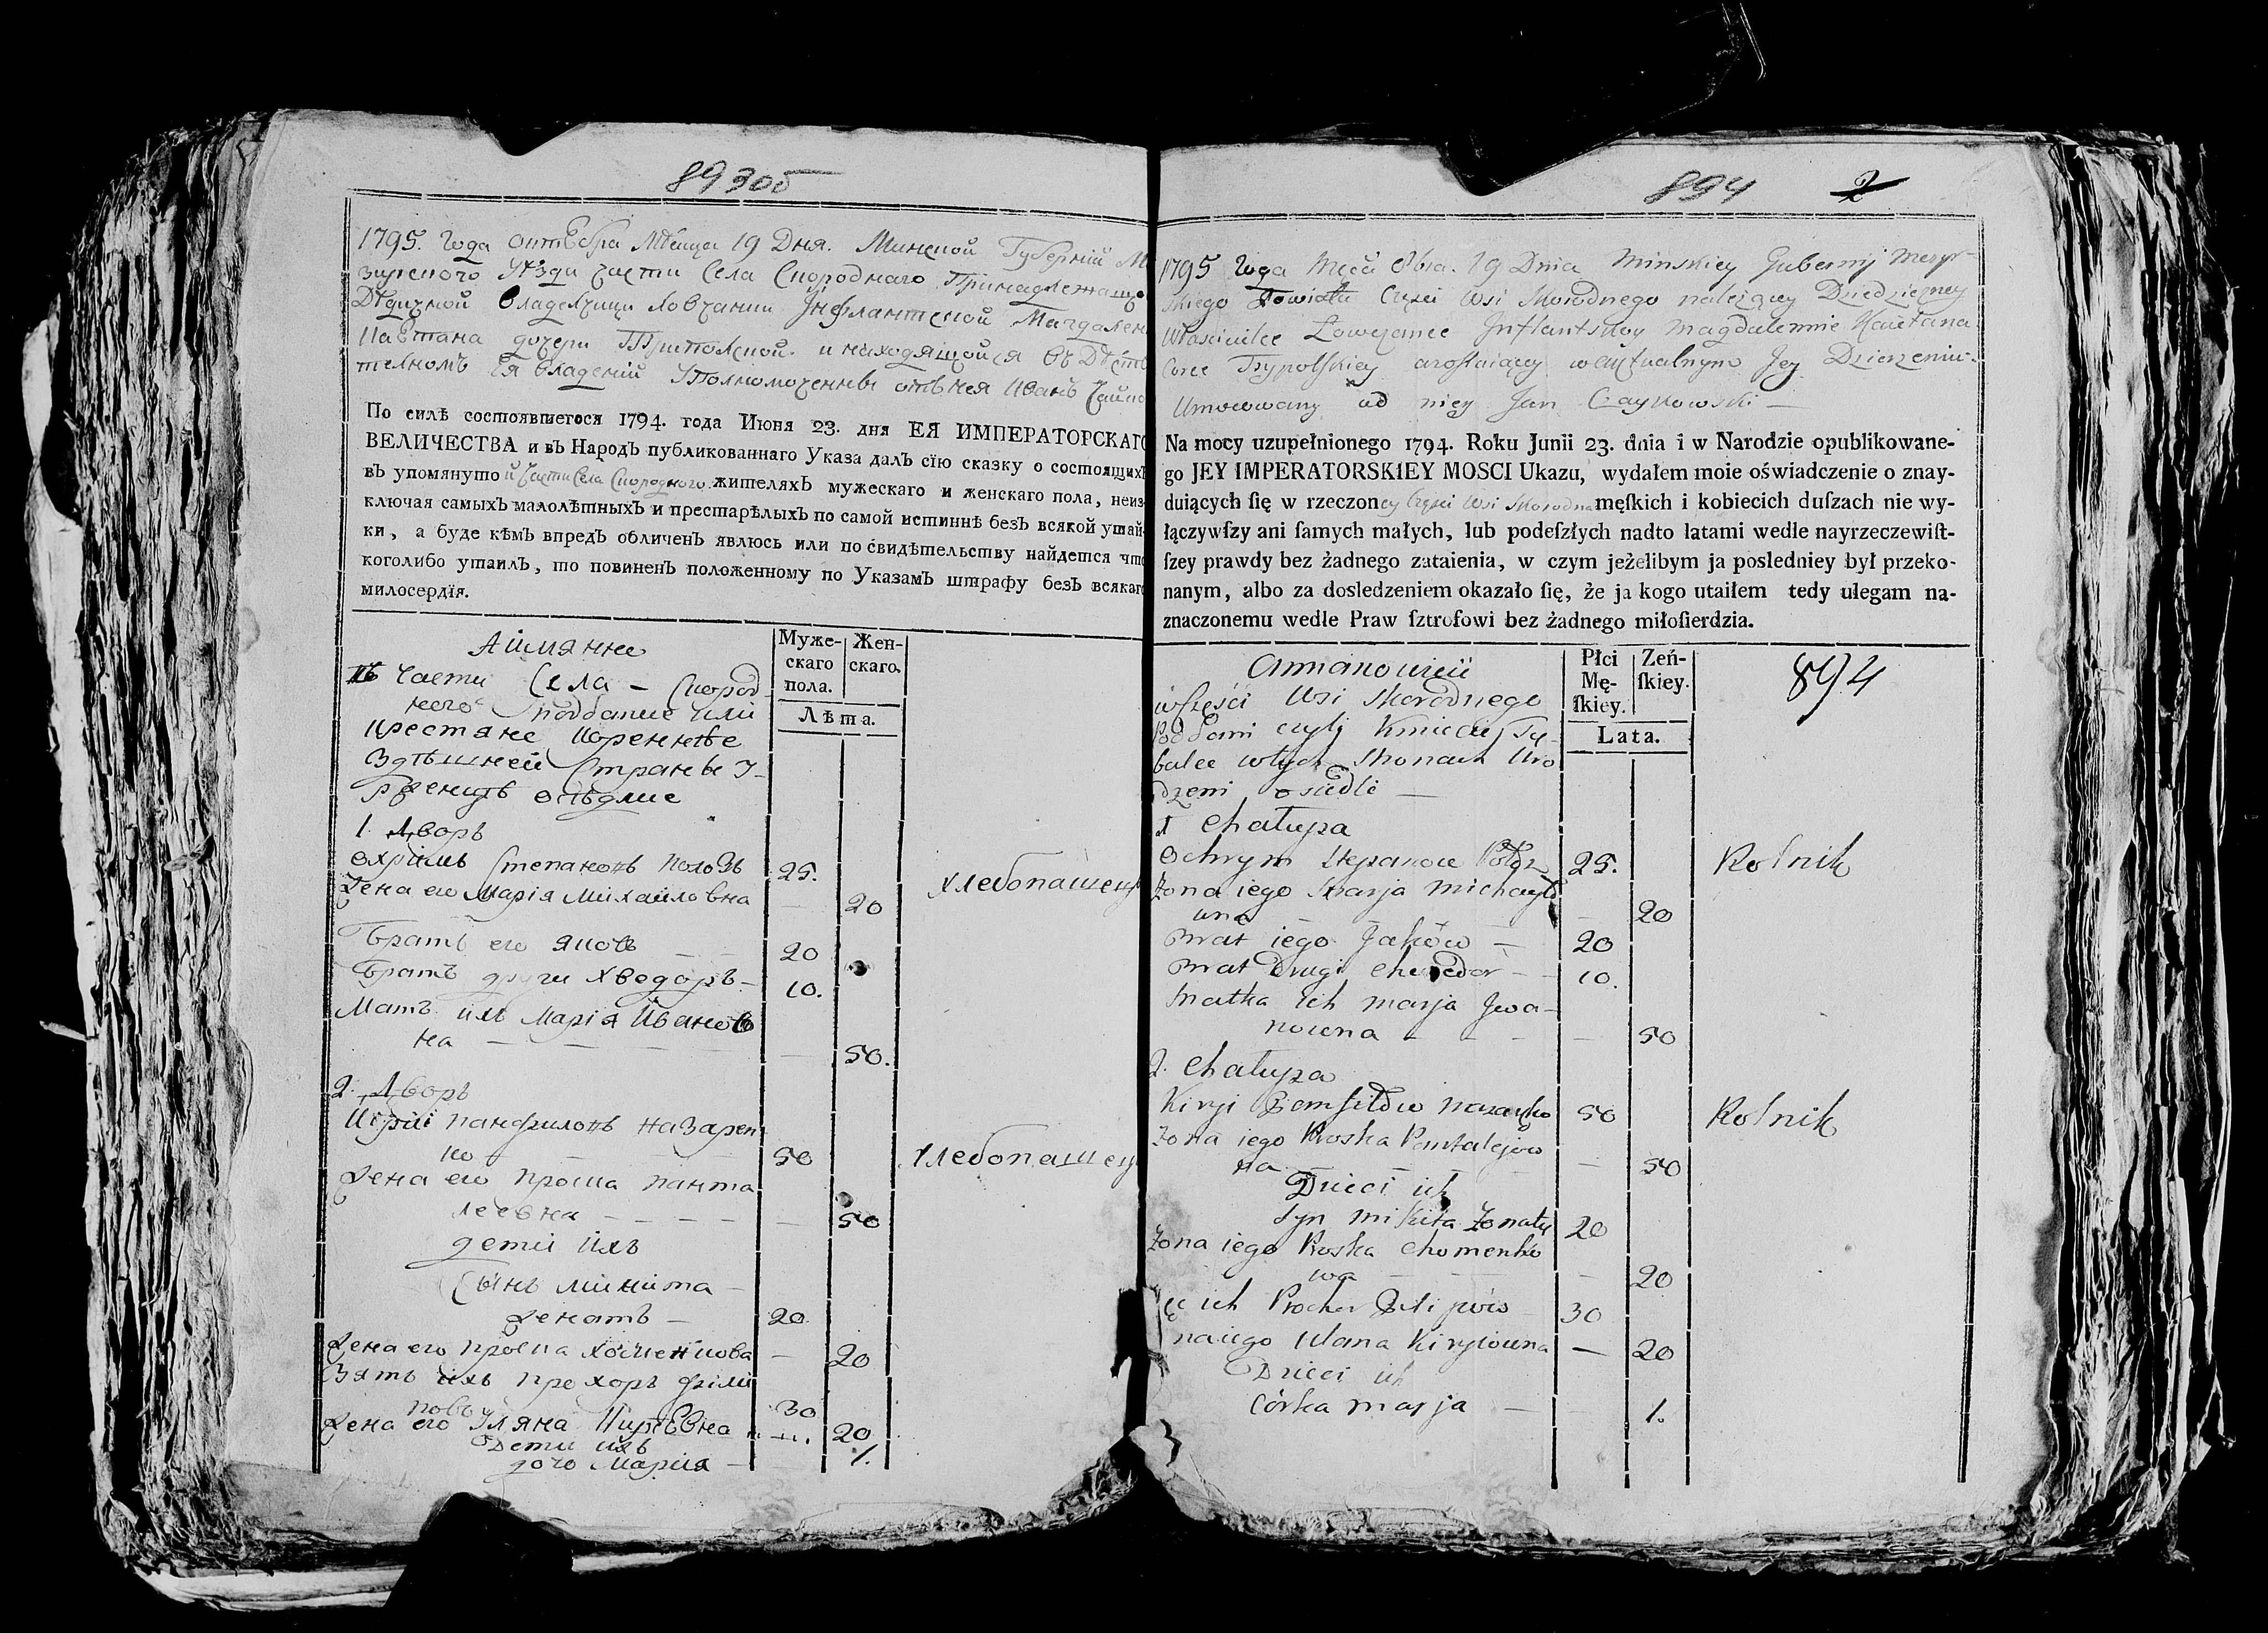 893об
1795. Года октѣбра Мѣсица 19 Дня. Минской Губерніи М
зирского Уѣзда части Села Скороднаго Принадлежащо
Дѣдичной Владелчици Ловчанки Інфлантской Магдален
Каѣтана дочери Трипольской и находящойся въ Дѣйст
телномъ Ея Владеніи Уполномоченны отъ нея Иванъ Чайко
По силѣ состоявшегося 1794. года Июня 23. дня ЕЯ ИМПЕРАТОРСКАГО
ВЕЛИЧЕСТВА и въ Народъ публикованнаго Указа далъ сїю сказку о состоящихъ
въ упомянуто й части Села Скородного жителяхъ мужескаго и женскаго пола, неиз-
ключая самыхъ малолѣтныхъ и престарѣлыхъ по самой истиннѣ безъ всякой утай-
ки, а буде кѣмъ впредъ обличенъ явлюсь или по свидѣтельству найдется что
коголибо утаилъ, то повиненъ положенному по Указамъ штрафу безъ всякаго
милосердїя.
Аймянно
Муже-
скаго
пола.
Жен-
скаго.
Лѣта.
въ Части Села - Скород
ного подданіе или
крестяне коренніе
Здѣшней Страны У-
роженцѣ осѣдліе
1. Дворъ
Охрімъ Степановъ Полозъ 25. Хлебопашец
Жена его Марія Михайловна — 20
Братъ его Яковъ — 20
Братъ други Хведоръ — 10.
Мать ихъ Марія Иванов
на — 50.
2. Дворъ
Кірій Панфиловъ Назарен
ко 50 Хлебопашец
Жена его Проска Панта
леевна — 50
дети ихъ
Сынъ Микита —
Женатъ — 20
Жена его Проска Хоменкова — 20
Зять ихъ Прохоръ Філи
повъ 30
Жена его Уляна Кирѣевна — 20
Дети ихъ
дочь Мария — 1.
894 2
1795 Roga Mcca 8bra. 19 Dnia Minskiey Gubernij Mozyr-
skiego Powiatu Częsci Wsi Skorodnego należący Dziedziczney
Własciciлce Łowczance Inflantskoy Magdalennie Kaietana
Corce Trypolskiey azostaiący w Aktualnym Jey Dzierżeniu
Umocowany od niey Jan Czaykowski —
Na mocy uzupełnionego 1794. Roku Junii 23. dnia i w Narodzie opublikowane-
go JEY IMPERATORSKIEY MOSCI Ukazu, wydałem moie oświadczenie o znay-
duiących ſię w rzeczon ey Częsci Wsi Skorodna męſkich i kobiecich duſzach nie wy-
łączywſzy ani ſamych małych, lub podeſzłych nadto latami wedle nayrzeczewiſt-
ſzey prawdy bez żadnego zataienia, w czym jeżelibym ja posledniey był przeko-
nanym, albo za dosledzeniem okazało ſię, że ja kogo utaiłem tedy ulegam na-
znaczonemu wedle Praw ſztrofowi bez żadnego miłoſierdzia.
Amianowicii
Płci
Mę-
ſkiey.
Zeń-
ſkiey.
Lata.
894
w Częsci Wsi Skorodnego
Poddani czyli Kmiecie Ty-
bulce w tych Stronach Uro
dzeni osiedli —
1 Chałupa
Ochrym Stepanow Połoz 25. Rolnik
Żona iego Marja Michayło
wna — 20
Brat iego Jakow — 20
Brat Drugi Chwedor — 10.
Matka ich Marja Jwa-
nowna — 50
2. Chałupa
Kiryi Pamfiłow Nazarko 50 Rolnik
Zona iego Proska Pantalejow
na — 50
Dzieci ich
Syn Mikita Zonaty 20
Zona iego Proska Chomenko
wa — 20
ęc ich Prochor Filipow 30
na iego Ulana Kiryiowna — 20
Dzieci ich
Córka Marja — 1.